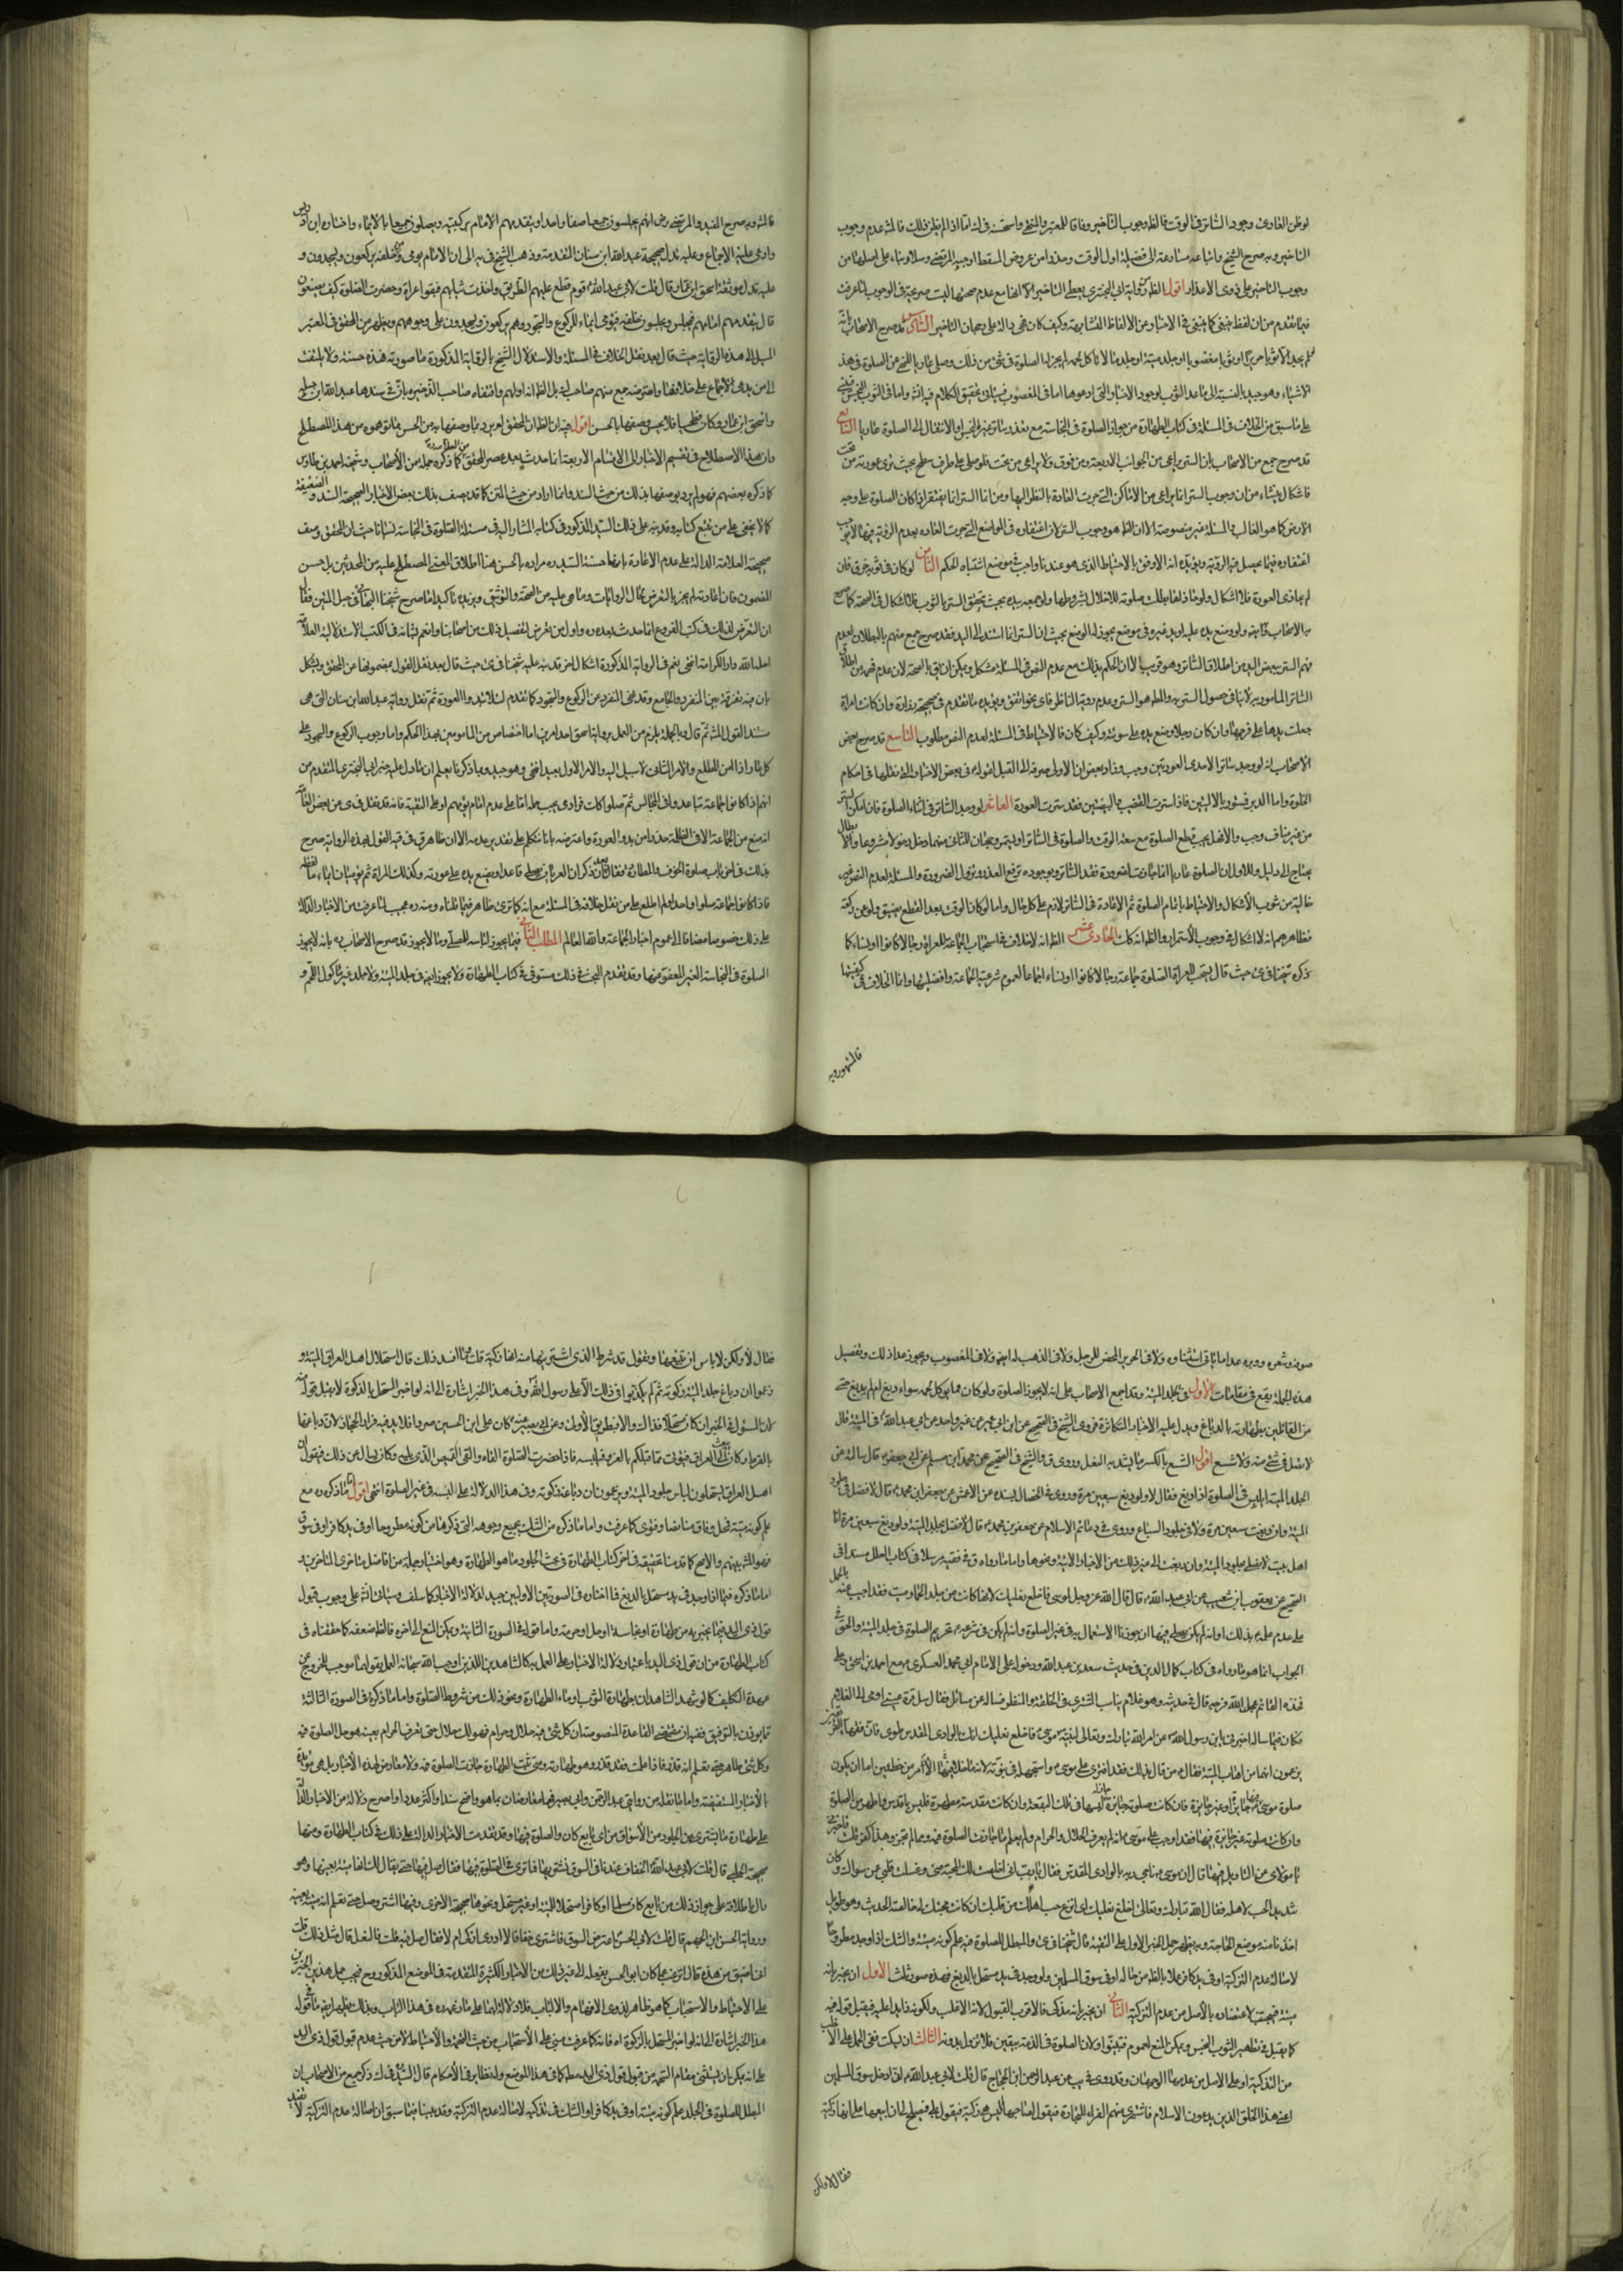 لو ظن العاري وجود الساتر في الوقت فالظ وجوب التاخير وفاقا للمعتبر والتحرير واستحسنه في اما اذا لم يظن ذلك فالمش عدم وجوب
التاخير وبه صرح الشيخ واتباعه مسارعة الى فضيلة اول الوقت وحذرا من عروض المسقط اوجبه المرتضى وسلار بناء على اصلهما من
وجوب التاخير على ذوي الاعذار اقول الظ رواية ابي البختري يعطى التاخير الا انها مع عدم صحتها ليست صريحة في الوجوب لما عرفت
فيما تقدم من ان لفظ ينبغي كما ينبغي في الاخبار من الالفاظ المتشابهة وكيف كان فهي دالة على رجحان التاخير السادس قد صرح الاصحاب بانه
لو لم يجد الا ثوبا حريرا او ثوبا مغصوبا او جلد ميتة او جلد ما لا ياكل لحمه لم يجز له الصلوة في شيء من ذلك وصلى عاريا للنهي عن الصلوة في هذه
الاشياء وهو جيد بالنسبة الى ما عدا الثوب لوجود الاخبار التي ادعوها اما في المغصوب فسياتي تحقيق الكلام فيه انش واما في الثوب النجس فمبني
على ما سبق من الخلاف في المسئلة في كتاب الطهارة من جواز الصلوة في النجاسة مع تعذر ساتر غير النجس او الانتقال الى الصلوة عاريا السابع
قد صرح جمع من الاصحاب بان الستر يراعى من الجوانب الاربعة ومن فوق ولا يراعى من تحت فلو صلى على طرف سطح بحيث ترى عورته من تحت
فاشكال ينشاء من ان وجوب الستر انما يراعى من الاماكن التي جرت العادة بالنظر اليها ومن انا الستر انما يفتقر اذا كان الصلوة على وجه
الارض كما هو الغالب والمسئلة غير منصوصة الا ان الظ هو وجوب الستر لان اغتفاره في المواضع التي جرت العاده بعدم الرؤية فيها لا يوجب
اغتفاره فيما يحصل فيه الرؤية ويؤيده انه الاوفق بالاحتياط الذي هو عندنا واجب في موضع اشتباه الحكم الثامن لو كان في ثوبه خرق فان
لم يحاذى العورة فلا اشكال ولو حاذاها بطلت صلوته للاخلال بشروطها ولو جمعه بيده بحيث تحقق الستر بالثوب فلا اشكال في الصحة كما صرح
به الاصحاب ولو وضع يده عليه او يد غيره في موضع يجوز له الوضع بحيث ان الستر انما استند الى اليد فقد صرح جمع منهم بالبطلان لعدم
فهم الستر ببعض البدن من اطلاق الساتر وهو قريب الا ان الحكم بذلك مع عدم النص في المسئلة مشكل ويمكن ان يق بالصحة لان عدم فهمه من اطلاق
الساتر المامور به لا ينافي حصول الستر به والظ هو الستر وعدم روية الناظر فاى نحو اتفق ويؤيده ما تقدم في صحيحة زرارة وان كانت امراة
جعلت يدها على فرجها وان كان رجلا وضع يده على سوءته وكيف كان فالاحتياط في المسئلة لعدم النص مطلوب التاسع قد صرح بعض
الاصحاب انه لو وجد ساترا لاحدى العورتين وجب وزاد بعض ان الاولى صرفه الى القبل لقوله في بعض الاخبار التي نقلها في احكام
الخلوة واما الدبر فمستور بالاليتين فاذا سترت القضيب والبيضتين فقد سترت العورة العاشر لو وجد الساتر في اثناء الصلوة فان امكن الستر
من غير مناف وجب والا فهل يجب قطع الصلوة مع سعة الوقت والصلوة في الساتر او يستمر وجهان للثاني منهما دخل دخولا مشروعا والابطال
يحتاج الى دليل وللاول ان الصلوة عاريا انما جازت لضرورة فقد الساتر وبوجوده ترتفع العذر وتزول الضرورة والمسئلة لعدم النص غير
خالية من شوب الاشكال والاحتياط باتمام الصلوة ثم الاعادة في الساتر لازم على كل حال واما لو كان الوقت بعد القطع يضيق ولو عن ركعة
فظاهرهم انه لا اشكال في وجوب الاستمرار والظ انه كك الحادي عشر الظ انه لا خلاف في استحباب الجماعة للعراة رجالا كانوا او نساء كما
ذكره شيخنا في حيث قال يستحب للعراة الصلوة جماعة رجالا كانوا او نساء اجماعا لعموم شرعية الجماعة وافضليتها وانما الخلاف في كيفيتها
فالمشهور وبه
فالمش وبه صرح المفيد والمرتضى رض انهم يجلسون جميعا صفا واحدا ويتقدمهم الامام بركبتيه ويصلون جميعا بالايماء واختاره ابن ادريس
وادعى عليه الاجماع وعليه تدل صحيحة عبد الله ابن سنان المتقدمة وذهب الشيخ في يه الى ان الامام يومى ومن خلفه يركعون ويسجدون و
عليه تدل موثقة اسحق ابن عمار قال قلت لابي عبد الله ع قوم قطع عليهم الطريق واخذت ثيابهم فبقوا عراة وحضرت الصلوة كيف يصنعون
قال يتقدمهم امامهم فيجلس ويجلسون خلفه فيومى ايماء للركوع والسجود وهم يركعون ويسجدون على وجوههم ويظهر من المحقق في المعتبر
الميل الى هذه الرواية حيث قال بعد نقل الخلاف في المسئلة والاستدلال الشيخ بالرواية المذكورة ما صورته هذه حسنة ولا يلتفت
الى من يدعى الاجماع على خلافها واعترضه جمع منهم صاحب لك بل الظ انه اولهم واقتفاه صاحب الذخيرة بان في سندها عبد الله ابن جبلة
واسحق ابن عمار وكان فطحيا فلا يحسن وصفها بالحسن اقول فيه ان الظ ان المحقق لم يرد بما وصفها به من الحسن ما توهموه من هذا المصطلح
وان هذا الاصطلاح في تقسيم الاخبار الى الاقسام الاربعة انما حدث بعد عصر المحقق كما ذكره جملة من الاصحاب وشيخه احمد بن طاوس
كما ذكره بعضهم فهو لم يرد بوصفها بذلك من حيث السند وانما اراد من حيث المتن كما قد يصف بذلك بعض الاخبار الصحيحة السند والضعيفة
كما لا يخفى على من تتبع كتابه وقد نبه على ذلك السيد المذكور في كتابه المشار اليه في مسئلة الصلوة في النجاسة نسيانا حيث ان المحقق وصف
صحيحة العلا الدالة على عدم الاعادة بانها حسنة السيد ره مراده بالحسن هنا اطلاق المعنى المصطلح عليه من المحدثين بل حسن
المضمون فان عادته لم يجر بالتعرض لحال الروايات وما هي عليه من الصحة والتوثيق ويزيده تاكيدا ما صرح شيخنا البهائي في حبل المتين فقال
ان التعرض لذلك في كتب الفروع انما حدث بعده ره واول من تعرض لتفصيل ذلك من اصحابنا وانعم لسانه في الكتب الاستدلالية العلامة
احله الله دار الكرامة انتهى نعم في الرواية المذكورة اشكال اخر قد نبه عليه شيخنا في حيث قال بعد نقل القول بمضمونها عن المحقق ويشكل
بان فيه تفرقة بين المنفرد والجامع وقد نهى المنفرد عن الركوع والسجود كما تقدم لئلا تبدوا العورة ثم نقل رواية عبد الله ابن سنان التي هي
سند القول المش ثم قال وبالجملة يلزم من العمل برواية اسحق احد امرين اما اختصاص من المامومين بهذا الحكم واما وجوب الركوع والسجود على
كل عار اذا امن المطلع والامر الثاني لا سبيل اليه والامر الاول بعيد انتهى وهو جيد وبما ذكرنا يعلم ان ما دل عليه خبر ابي البختري المتقدم من
انهم اذا كانوا جماعة تباعدوا في المجالس ثم صلوا كك فرادى يجب حمله اما على عدم امام يؤمهم او على التقية فانه قد نقل في ى عن بعض العامة
انه منع من الجماعة الا في الظلمة حذرا من بدو العورة واعترضه بانا نتكلم على تقدير عدمه الا ان ظاهر ق في فيه القول بهذه الرواية صرح
بذلك في اخر باب صلوة الخوف والمطاردة فقال بعد ان ذكر ان العريان يصلى قاعدا ويضع يده على عورته وكذلك المراة ثم يؤميان ايماء ما لفظه
فاذا كانوا جماعة صلوا وحدانا ولم اطلع على من نقل خلافه في المسئلة مع انه كما ترى ظاهر فيما قلناه ومنه ره عجيب لما عرفت من الاخبار الدالة
على ذلك خصوصا مضافا الى عموم اخبار الجماعة والله العالم المطلب الثاني فيما يجوز لباسه للمصلى وما لا يجوز قد صرح الاصحاب ره بانه لا يجوز
الصلوة في النجاسة الغير المعفو عنها وقد تقدم البحث في ذلك مستوفى في كتاب الطهارة ولا يجوز ايض في جلد الميتة ولا جلد غير ماكول اللحم و
صوفه وشعره ووبره عدا ما ياتي استثناوه ولا في الحرير المحض للرجل ولا في الذهب له ايض ولا في المغصوب ويجوز عدا ذلك وتفصيل
هذه الجملة يقع في مقامات الاول في جلد الميتة وقد اجمع الاصحاب على انه لا يجوز الصلوة ولو كان مما يوكل لحمه سواء دبغ ام لم يدبغ حتى
من القائلين بطهارته بالدباغ ويدل عليه الاخبار المتكاثرة فروى الشيخ في الصحيح عن ابن ابي عمير عن غير واحد عن ابي عبد الله ع في الميتة قال
لا تصل في شيء منه ولا شسع اقول الشسع بالكسر ما يشد به النعل وروى ق والشيخ في الصحيح عن محمد ابن مسلم عن ابي جعفر ع قال سالته عن
الجلد الميتة ايلبس في الصلوة اذا دبغ فقال لا ولو دبغ سبعين مرة وروى في الخصال بسنده عن الاعمش عن جعفر ابن محمد ع قال لا تصل في جلود
الميتة وان دبغت سبعين مرة ولا في جلود السباع وروى في دعائم الاسلام عن جعفر بن محمد ع قال لا تصل بجلد الميتة ولو دبغ سبعين مرة انا
اهل بيت لا نصلى بجلود الميتة وان دبغت الى غير ذلك من الاخبار الاتية ونحوها واما ما رواه ق في فقيه مرسلا في كتاب العلل مسندا في
الصحيح عن يعقوب ابن شعيب عن ابي عبد الله ع قال قال الله عز وجل لموسى فاخلع نعليك لانها كانت من جلد الحمار ميت فقد اجيب عنه بالحمل
على عدم علمه ع بذلك او انه لم يكن يصلى فيها ان جوزنا الاستعمال به في غير الصلوة وانه لم يكن في شرعه ع تحريم الصلوة في جلد الميتة والحق في
الجواب انما هو ما رواه في كتاب كمال الدين في حديث سعد بن عبد الله ودخوله على الامام ابي محمد العسكري ع مع احمد بن اسحق وعلى
فخذه القائم عجل الله فرجه قال في حديثه وهو غلام يناسب المشتري في الخلقة والمنظر فساله عن مسائل فقال سل قرة عيني اومى الى الغلام
فكان فيما ساله اخبرني يا ابن رسول الله ص عن امر الله تبارك وتعالى لنبيه موسى ع فاخلع نعليك انك بالوادي المقدس طوى فان فقهاء الفريقين
يزعمون انها من اهاب الميتة فقال ع من قال بذلك فقد افترى على موسى ع واستجهله في نبوته لانه ما خلا فيها الامر من خطبين اما ان يكون
صلوة موسى فيها جايزة او غير جايزة فان كانت صلوته جايزة جاز له لبسها في تلك البقعة وان كانت مقدسة مطهرة فليس باقدس واطهر من الصلوة
وان كانت صلوته غير جايزة فيها فقد اوجب على موسى ع انه لم يعرف الحلال والحرام ولم يعلم ما جازت الصلوة فيه ومما لم تجز وهذا كفر قلت فاخبرني
يا مولاى عن التاويل فيها قال ان موسى ع ناجى ربه بالوادي المقدس فقال يا رب اني اخلصت لك المحبة مني وغسلت قلبي عن سواك وكان
شديد الحب لاهله فقال الله تبارك وتعالى اخلع نعليك اى انزع حب اهلك من قلبك ان كانت محبتك لي خالصة الحديث وهو طويل
اخذنا منه موضع الحاجة وبه يظهر حمل الخبر الاول على التقية قال شيخنا في ى والمبطل للصلوة فيه علم كونه ميتة والشك اذا وجد مطروحا
لاصالة عدم التذكية او في يد كافر عملا بالظ من حاله او في سوق المسلمين ولو وجد في يد مستحل بالدبغ فهذه صور ثلث الاول ان يخبر بانه
ميتة فيجتنب لاعتضاده بالاصل من عدم التذكية الثاني ان يخبر بانه مذكى فالاقرب القبول لانه الاغلب ولكونه ذا يد عليه فيقبل قوله فيه
كما يقبل في تطهير الثوب النجس ويمكن المنع لعموم فتبينوا ولان الصلوة في الذمة بيقين فلا تزول بدونه الثالث ان يسكت ففي الحمل على الاغلب
من التذكية او على الاصل من عدمها الوجهان وقد روى في يب عن عبد الرحمن ابن الحجاج قال قلت لابي عبد الله ع اني ادخل سوق المسلمين
اعني هذا الخلق الذين يدعون الاسلام فاشتري منهم الفراء للتجارة فيقول لصاحبها اليس هي ذكية فيقول بلى فيصلح لي ان ابيعها على انها ذكية
فقال لا ولكن
فقال لا ولكن لا باس ان تبيعها وتقول قد شرط الذي اشتريتها منه انها ذكية قلت وما افسد ذلك قال استحلال اهل العراق الميتة و
زعموا ان دباغ جلد الميتة ذكوته ثم لم يكذبوا في ذلك الا على رسول الله ص وفي هذا الخبر اشارة الى انه لو اخبر المستحل بالذكوة لا يقبل قوله منه
لان المسؤل في الخبر ان كان مستحلا فذاك والا فبطريق الاولى وعن ابي بصير عنه ع كان على ابن الحسين صردا فلا يدفيه فراء الحجاز لان دباغها
بالقرظ وكان يبعث الى العراق فيؤتى مما قبلكم بالفرو فيلبسه فاذا حضرت الصلوة القاه والقى القميص الذي يليه وكان يسال عن ذلك فيقول ان
اهل العراق يستحلون لباس جلود الميتة ويزعمون ان دباغه ذكوته وفي هذا الدلالة على لبسه في غير الصلوة انتهى اقول ما ذكره ره مع
علم كونه ميتة فمحل وفاق نصا وفتوى كما عرفت واما ما ذكره من الشك بجميع وجوهه التي ذكرها من كونه مطروحا او في يد كافر او في سوق
فهو المش بينهم والاصح كما قدمنا تحقيقه في اخر كتاب الطهارة في بحث الجلود ما هو الطهارة وهو اختيار جملة من افاضل متاخري المتاخرين
اما ما ذكره فيما اذا وجد في يد مستحل بالدبغ فما اختاره في الصورتين الاوليين جيد لدلالة الاخبار كما سلف وسياتي انش على وجوب قبول
قول ذى اليد فيما يخبر به من طهارة او نجاسة او حل او حرمة واما قوله في الصورة الثانية ويمكن المنع الى اخره فالظ ضعفه كما حققناه في
كتاب الطهارة من ان قول ذى اليد باعتبار دلالة الاخبار على العمل به كالشاهدين اللذين اوجب الله سبحانه العمل بقولهما موجب للخروج عن
عهدة التكليف كما لو شهد الشاهدان بطهارة الثوب او ماء الطهارة ونحو ذلك من شروط الصلوة واما ما ذكره في الصورة الثالثة
مما يوذن بالتوقف ففيه ان مقتضى القاعدة المنصوصة ان كل شيء فيه حلال وحرام فهو لك حلال حتى تعرف الحرام بعينه هو حل الصلوة فيه
وكل شيء طاهر حتى تعلم انه قذر فاذا علمت فقد قذر وهو طهارته ومتى ثبت الطهارة جازت الصلوة فيه ولا معارض لهذه الاخبار بل هي مؤيدة
بالاخبار المستفيضة واما ما نقله من روايتي عبد الرحمن وابي بصير فهما معارضان بما هو اوضح سندا واكثر عددا واصرح دلالة من الاخبار الدالة
على طهارة ما يشترى من الجلود من الاسواق من اى بايع كان والصلوة فيها وقد تقدمت الاخبار الدالة على ذلك في كتاب الطهارة ومنها
صحيحة الحلبي قال قلت لابي عبد الله ع الخفاف عندنا في السوق نشتريها فما ترى في الصلوة فيها فقال صل فيها حتى يقال لك انها ميتة بعينها وهو
دال باطلاقه على جواز ذلك من بايع كان مسلما او كافرا مستحلا للميتة او غير مستحل ونحوها صحيحة الاخرى وفيها اشتر وصل حتى تعلم انه ميتة بعينه
ورواية الحسن ابن الجهم قال قلت لابي الحسن ع اعترض السوق فاشترى خفا لا ادرى اذكى هو ام لا فقال صل فيه قلت فالنعل قال مثل ذلك قلت
اني اضيق من هذا قال اترغب عما كان ابو الحسن يفعله الى غير ذلك من الاخبار الكثيرة المتقدمة في الموضع المذكور وح فيجب حمل هذين الخبرين
على الاحتياط والاستحباب كما هو ظاهر لذوي الافهام والالباب فلا دلالة لهما على ما زعمه ره في هذا الباب وبذلك يظهر ايض ما في قوله
هذا الخبر اشارة الى انه لو اخبر المستحل بالذكوة اه فانه كما عرفت مبني على الاستحباب من حيث التهمة والاحتياط لا من حيث عدم قبول قول ذي اليد
على انه يمكن ان يستثنى مقام التهمة من قبول قول ذي اليد مطلقا كما في هذا الموضع ولو نظائر في الاحكام قال السيد في ك ذكر جمع من الاصحاب ان
المبطل للصلوة في الجلد علم كونه ميتة او في يد كافر او الشك في تذكية لاصالة عدم التذكية وقد بينا فيما سبق ان اصالة عدم التذكية لا تفيد